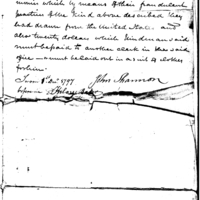 which by means of their fraudulent
practice of the kind above described they
had drawn from the United States. and
also twenty dollars which kindman said
must be paid to another clerk in the said
office — amount be laid out in a suit of clothes
for him.
1797 John Shannon
before me